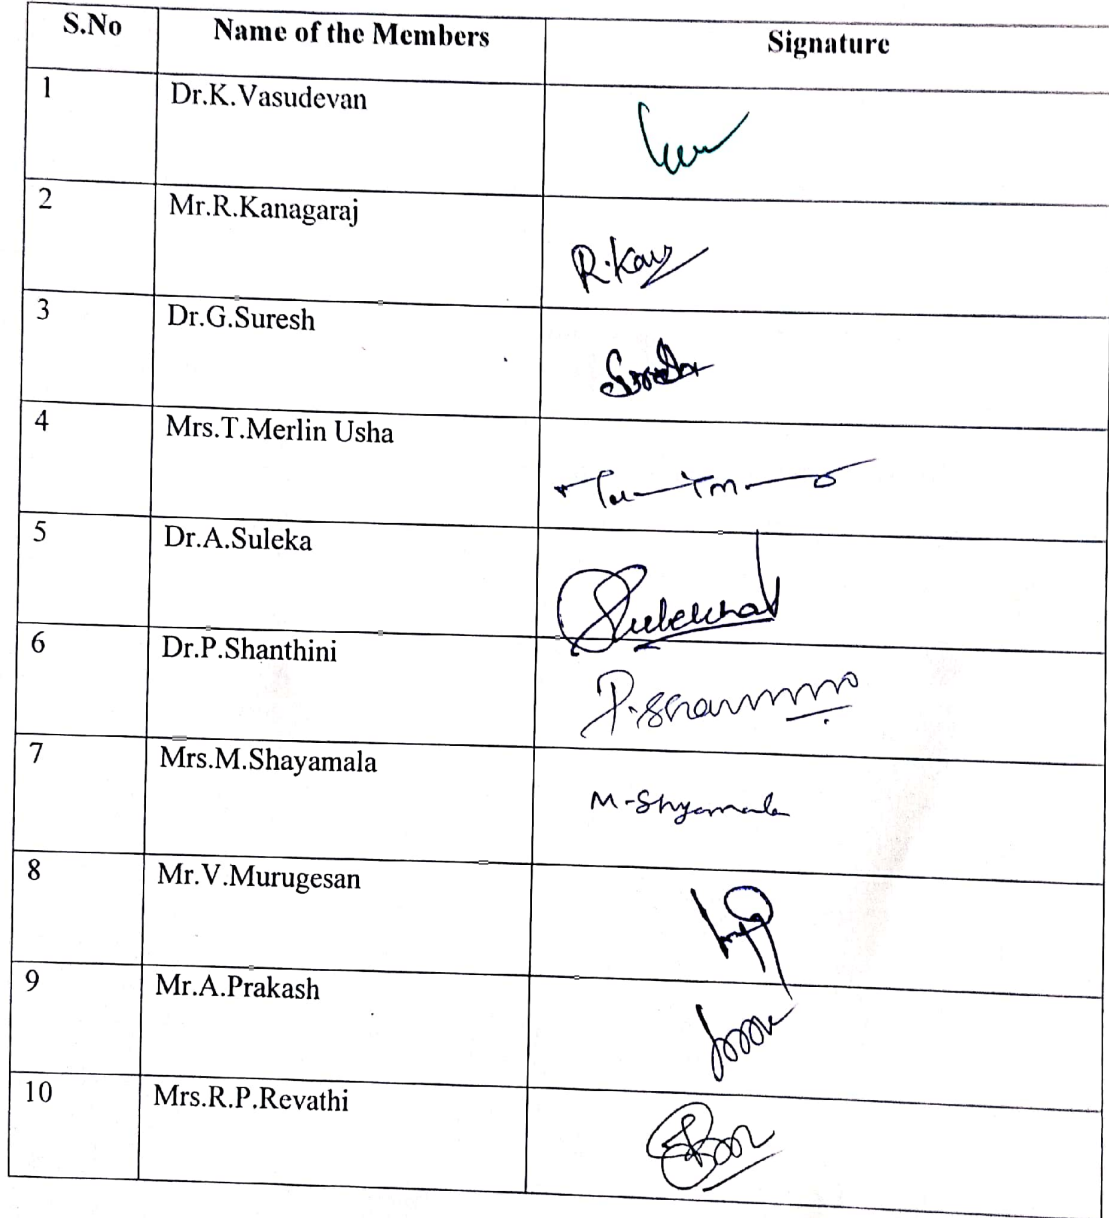 S.No Name of the Members Signature
1 Dr.K.Vasudevan
2 Mr.R.Kanagaraj
R.Kan
3 Dr.G.Suresh
4 Mrs.T.Merlin Usha
5 Dr.A.Suleka
6 Dr.P.Shanthini
7 Mrs.M.Shayamala
M-Shyamala
8 Mr.V.Murugesan
9 Mr.A.Prakash
10 Mrs.R.P.Revathi